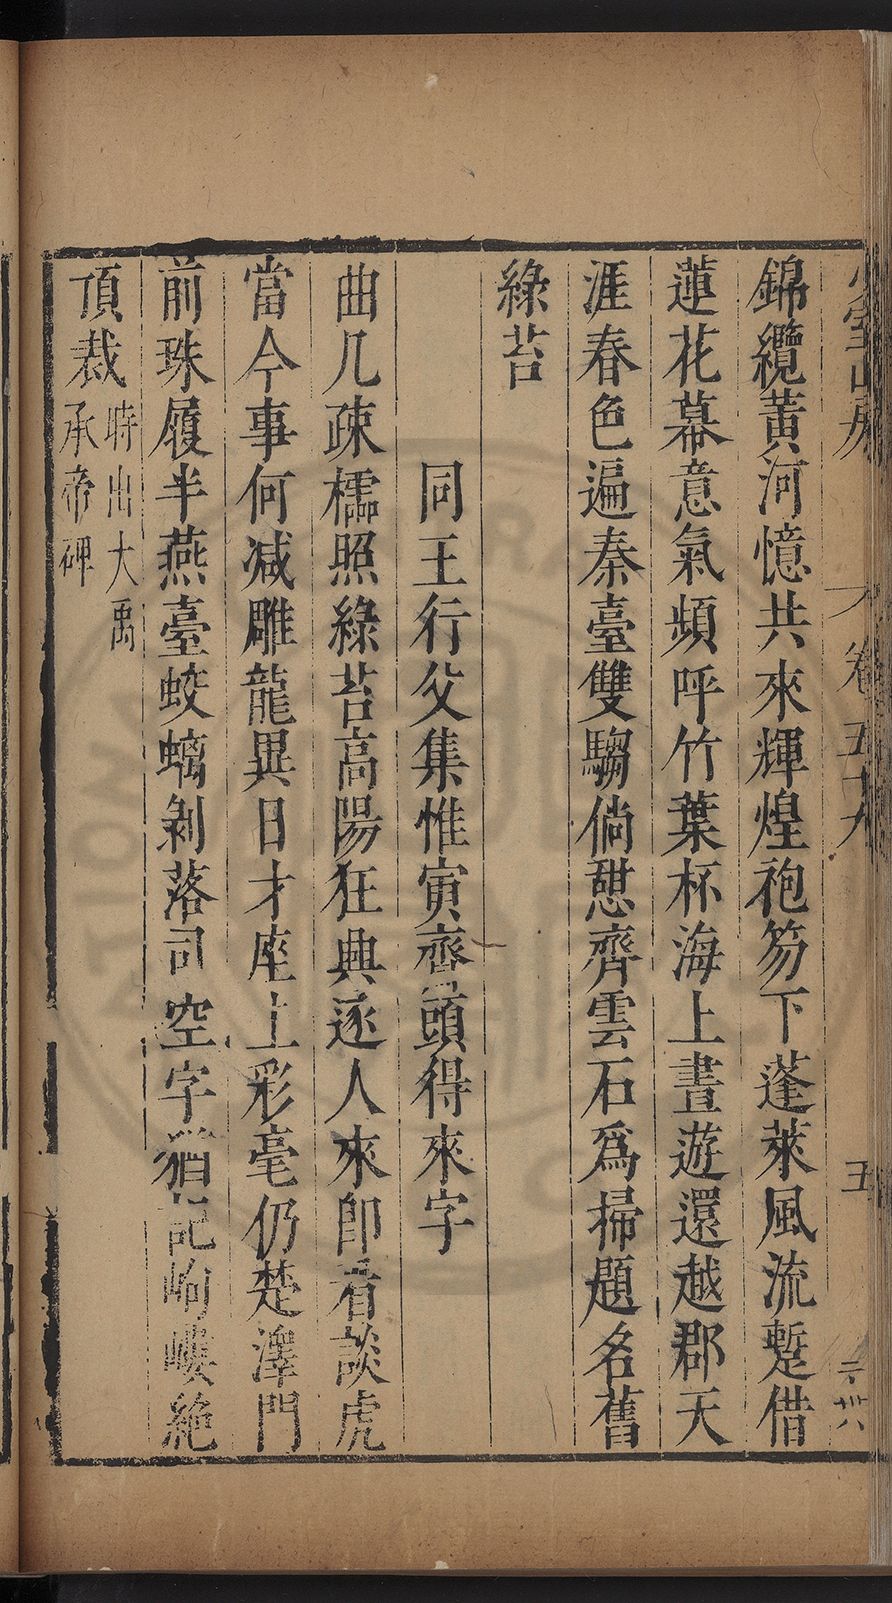 錦纜黃河憶共來輝煌袍笏下蓬萊風流蹔借
蓮花幕意氣頻呼竹葉杯海上晝遊還越郡天
涯春色遍秦臺雙騶倘憩齊雲石爲掃題名舊
綠苔
同王行父集惟寅齋頭得來字
曲几疎櫺照綠苔高陽狂興逐人來卽看談虎
當今事何減雕龍異日才座上彩毫仍楚澤門
前珠履半燕臺蛟螭剝落司空字猶記岣嶁絶
頂裁
時出大禹
承帝碑
山房
卷五十九
五